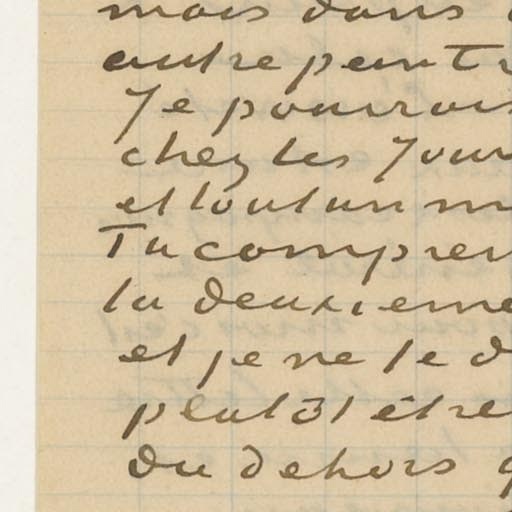 mais dans
autre peintr
Je pourrais
chez les Jour
et tout un m
Tu compren
la deuxieme
et je ne te d
plutôt être
du dehors q